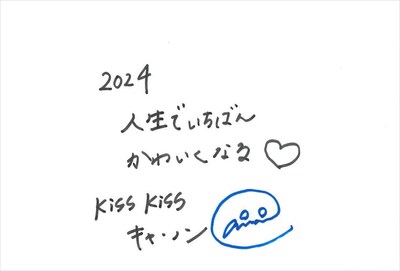 2024
人生でいちばん
かわいくなる♡
KiSS KiSS
キャノン